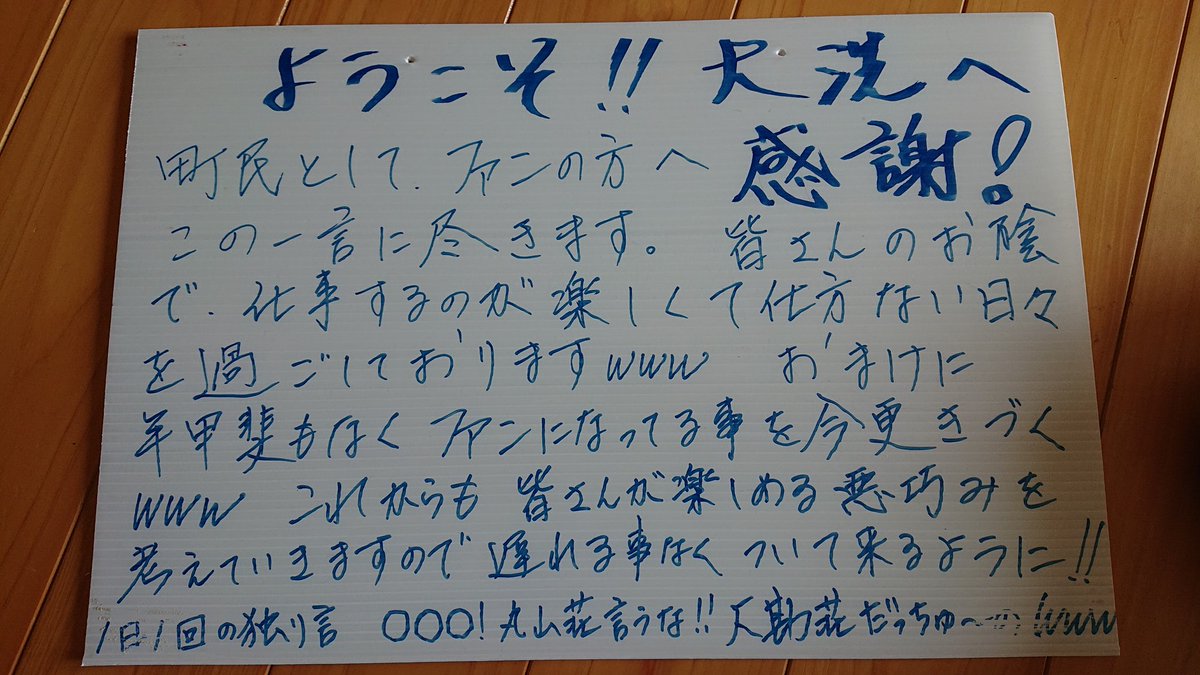 ようこそ!! 大洗へ
町民として、ファンの方へ 感謝!
この一言に尽きます。 皆さんのお陰
で、仕事するのが楽しくて仕方ない日々
を過ごしておりますwww おまけに
年甲斐もなくファンになってる事を今更きづく
www これからも皆さんが楽しめる悪巧みを
考えていきますので遅れる事なくついて来るように!!
1日1回の独り言 ○○○!丸山荘言うな!!大勘荘だっちゅ~のwww